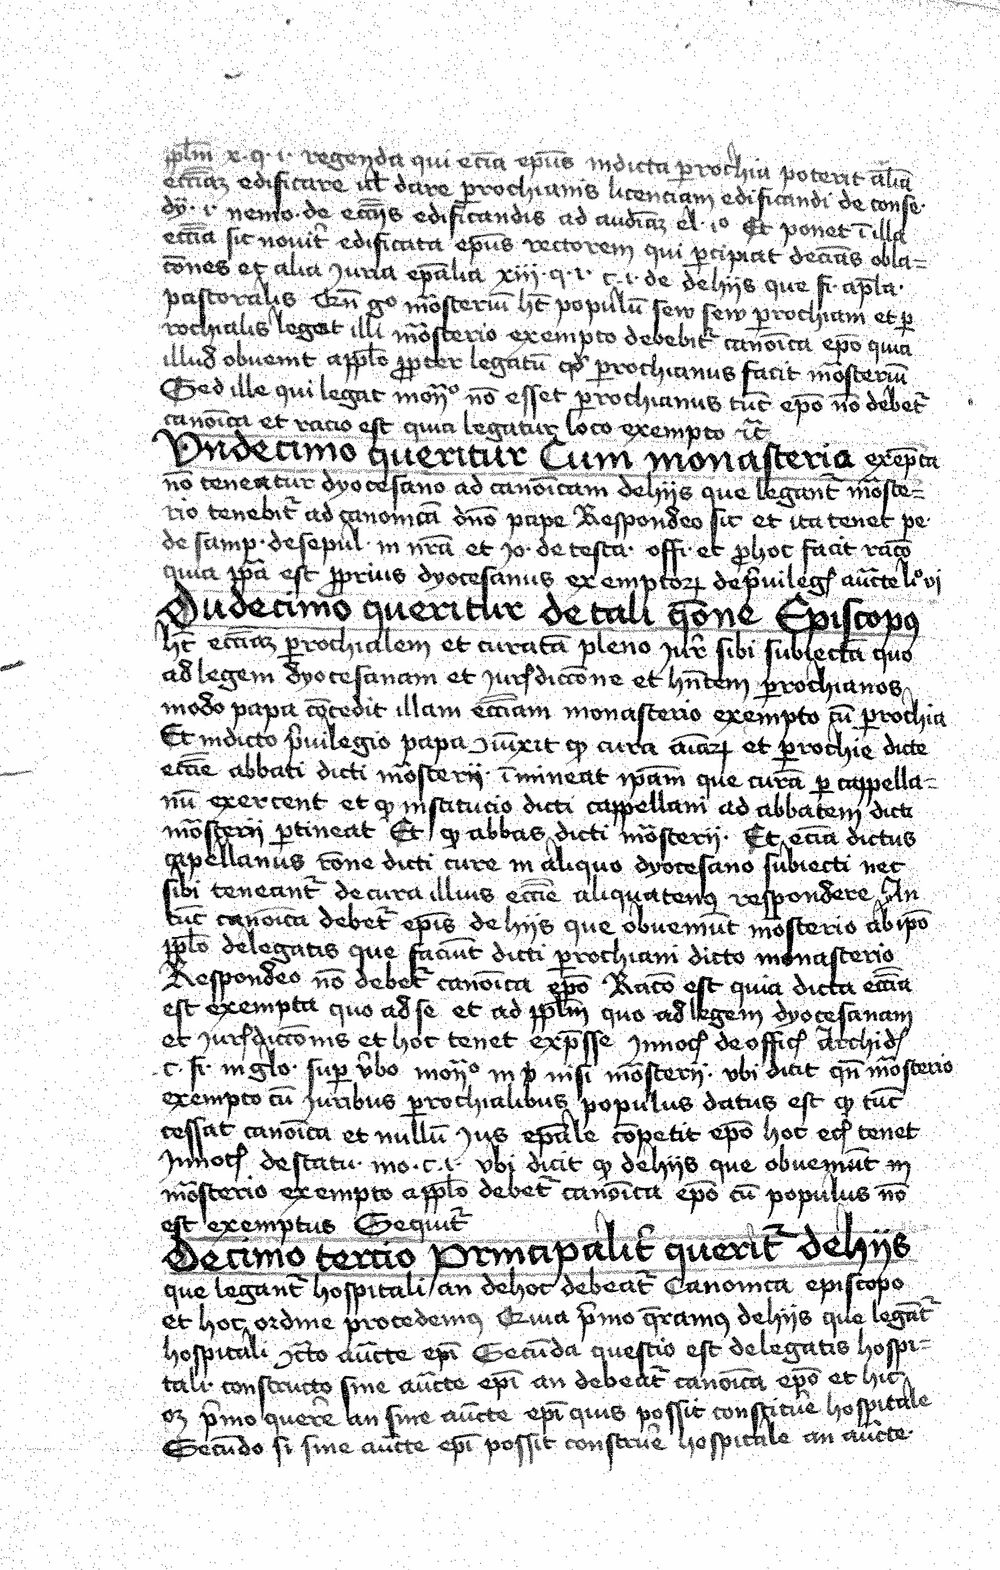 ppl̄m x. q. i. regenda qui ecīa ep̄us in dicta prochia poterit alīā
ecc̄iaz edificare ul̄ dare prochianis licenciam edificandi de conse.
dy. i. nemo. de ecc̄ijs edificandis ad audiaz el. i° Et ponet ī illa
ecc̄ia sic noviť edificata ep̄us rectorem qui p̱cipiat decīas obla=
cōnes et alia Jura ep̄alia xiij. q. i. c. i. de dehijs que fi. ap̄la.
pastoralis Qn̄ g° mōsteriū ht̄ populū sew sew prochiam et p̱
rochialis legat illi mōsterio exempto debebiť canōica epō quia
illud obvenit app̄lo pp̱ter legatū qd̄ prochianus facit mōsteriū
Sed ille qui legat moň° nō esset prochianus tūc epō nō debeť
canōica et racio est quia legatur loco exempto ic̄
Undecimo queritur Cum monasteria exēpta
nō teneatur dyocesano ad canōicam dehijs que leganť mōste=
rio tenebiť ad canonicā dn̄o pape Respondeo sic et ita tenet pe.
de samp. de sepul. in nr̄a et Jo. de testa. offi. et p̱hoc facit racō
quia ip̄a est pp̱rius dyocesanus exemptorꝝ de p̄vileḡ auc̄te l° vi
Dudecimo queritur de tali q̄one Episcopꝰ
ht̄ ecc̄iaz prochialem et curatā pleno Jur̄ sibi subiectā quo
ad legem dyocesanam et Jurſdiccōne et hn̄tem prochianos
modo papa cōcedit illam ecc̄iam monasterio exempto cū prochia
Et in dicto p̄uilegio papa Jūxit ꝙ cura aīarꝝ et prochie dicte
ecc̄ie abbati dicti mōsterij. īmineat ip̄am que curā p̱ cappella=
nū exercent et ꝙ institucio dicti cappellani ad abbatem dicti
mōsterij ptineat Et ꝙ abbas dicti mōsterij. Et ecīa dictus
capellanus rōne dicti cure in aliquo dyocesano subiecti nec
sibi teneanť de cura illius ecc̄ie aliquatenꝰ respondere An
tūc canōica debeť ep̄is de hijs que obveniūt mōsterio ab ipō
pp̄lo delegatis que faciūt dicti prochiani dicto monasterio
Respondeo nō debeť canōica epō Racō est quia dicta ecc̄ia
est exempta quo ad se et ad pp̄lm̄ quo ad legem dyocesanam
et Jurſdiccōnis et hoc tenet exp̄sse Innoc̄ de offic̄ archid̄
c. fi. in glo. sup̱ v̄bo moň° in p̱ nisi mōsterij. ubi dicit qn̄ mōsterio
exempto cū Juribus prochialibus populus datus est ꝙ tūc
cessat canōica et nullū Jus ep̄ale cōpetit epō hoc ec̄ tenet
Innoc̄ de statu. mo. c. i. ubi dicit ꝙ dehijs que obveniūt in
mōsterio exempto app̄lo debeť canōica epō cū populus nō
est exemptus Sequiť
Decimo tercio Principaliť queriť dehijs
que leganť hospitali/an dehoc debeať Canonica episcopo
et hoc ordine procedemꝰ Quia p̄mo q̄ramꝰ dehijs que legať
hospitali Jc̄to auc̄te ep̄i Secunda questio est delegatis hospi=
tali. constructo sine auc̄te ep̄i an debeať canōica epō et hic
oz p̄mo quer̄e an sine auc̄te ep̄i quis possit constitū̄e hospitale
Secundo si sine auc̄te ep̄i possit constru̅e hospitale an auc̄te.